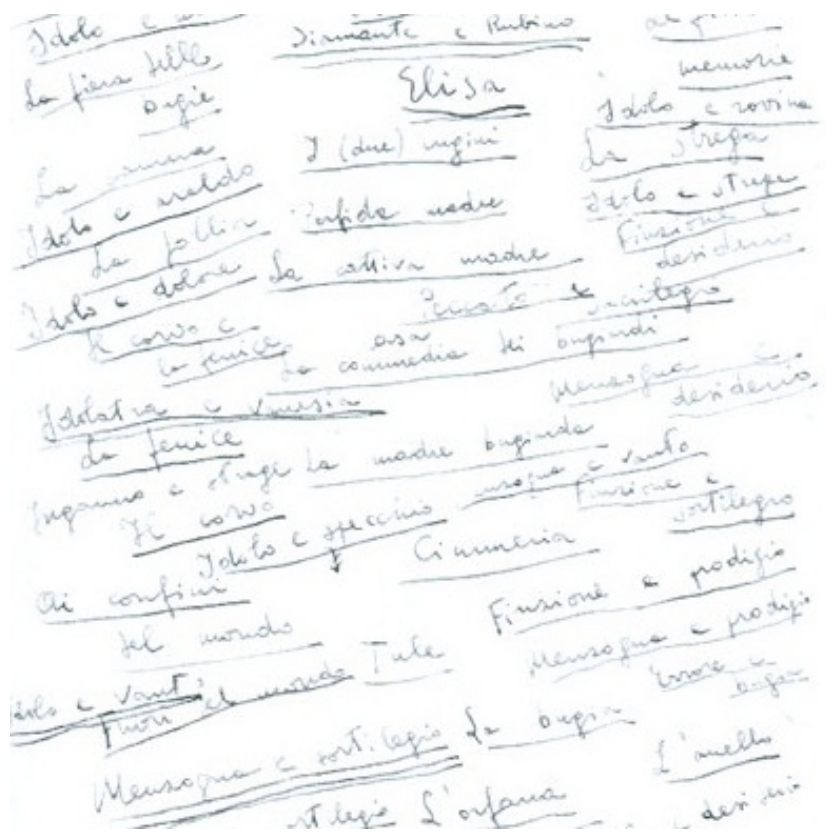 Idolo e
Diamante e Rubino
La fiera delle
bugie
Elisa
memorie
Idolo e rovina
I (due) cugini
La strega
La
Idolo e araldo
Perfida madre
Idolo e strega
La follia
Finzione e
desiderio
Idolo e dolore
La cattiva madre
Peccato e sacrilegio
Il corvo e
la fenice
La commedia dei bugiardi
Menzogna e
desiderio
Idolatra e
La fenice
Inganno e strage
La madre bugiarda
Il corvo
Idolo e specchio
e vanto
Finzione e
sortilegio
Cimmeria
Ai confini
del mondo
Finzione e prodigio
Menzogna e prodigio
Tule
Idolo e vanto
Fuori del mondo
Errore e
bugia
Menzogna e sortilegio
La bugia
L'anello
L'orfana